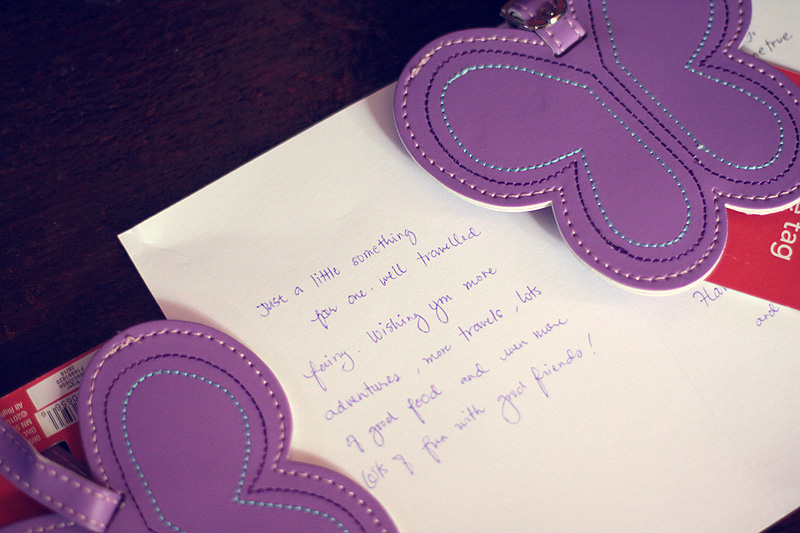 Just a little something
for one-well travelled
fairy. Wishing you more
adventures, more travels, lots
of good food and even more
lots of fun with good friends!
and
e true.
e tag
©201
MN 5
All Rig